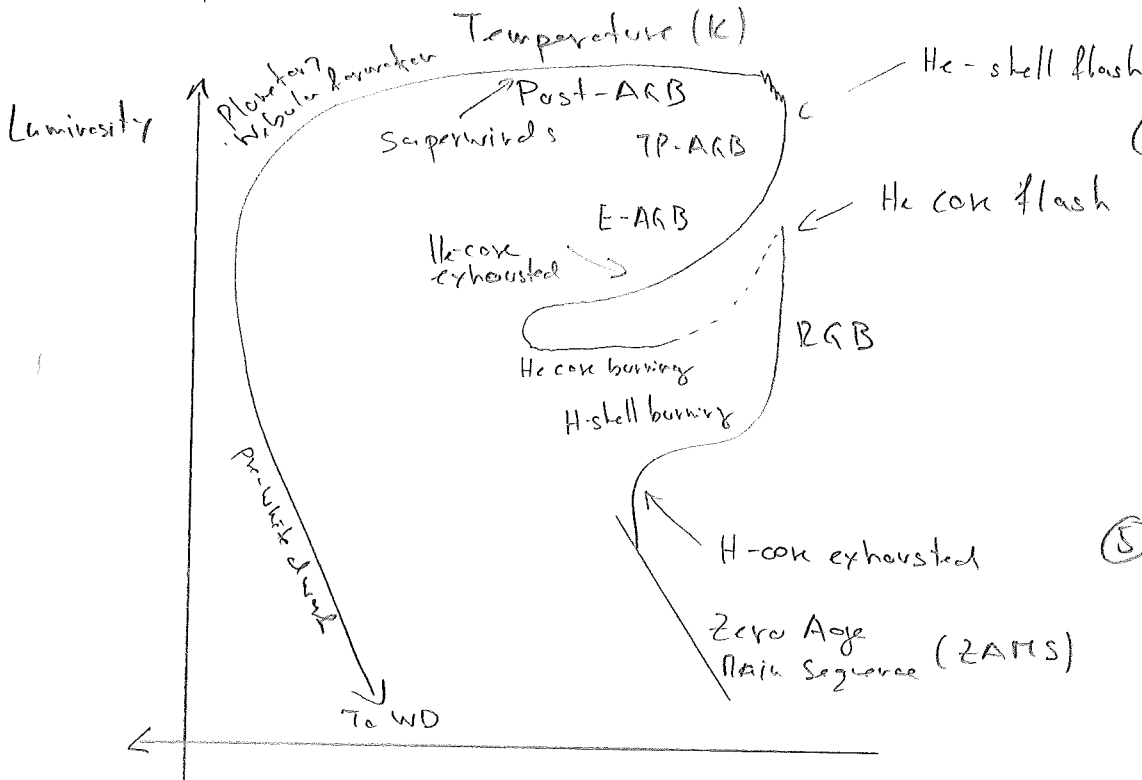 Temperature (K)
Luminosity
Planetary
Nebula formation
Post-AGB
Superwinds
TP-AGB
He-shell flash
(
He core flash
E-AGB
He-core
exhausted
RGB
He core burning
H-shell burning
Pre-white dwarf
H-core exhausted
5
Zero Age
Main Sequence (ZAMS)
To WD